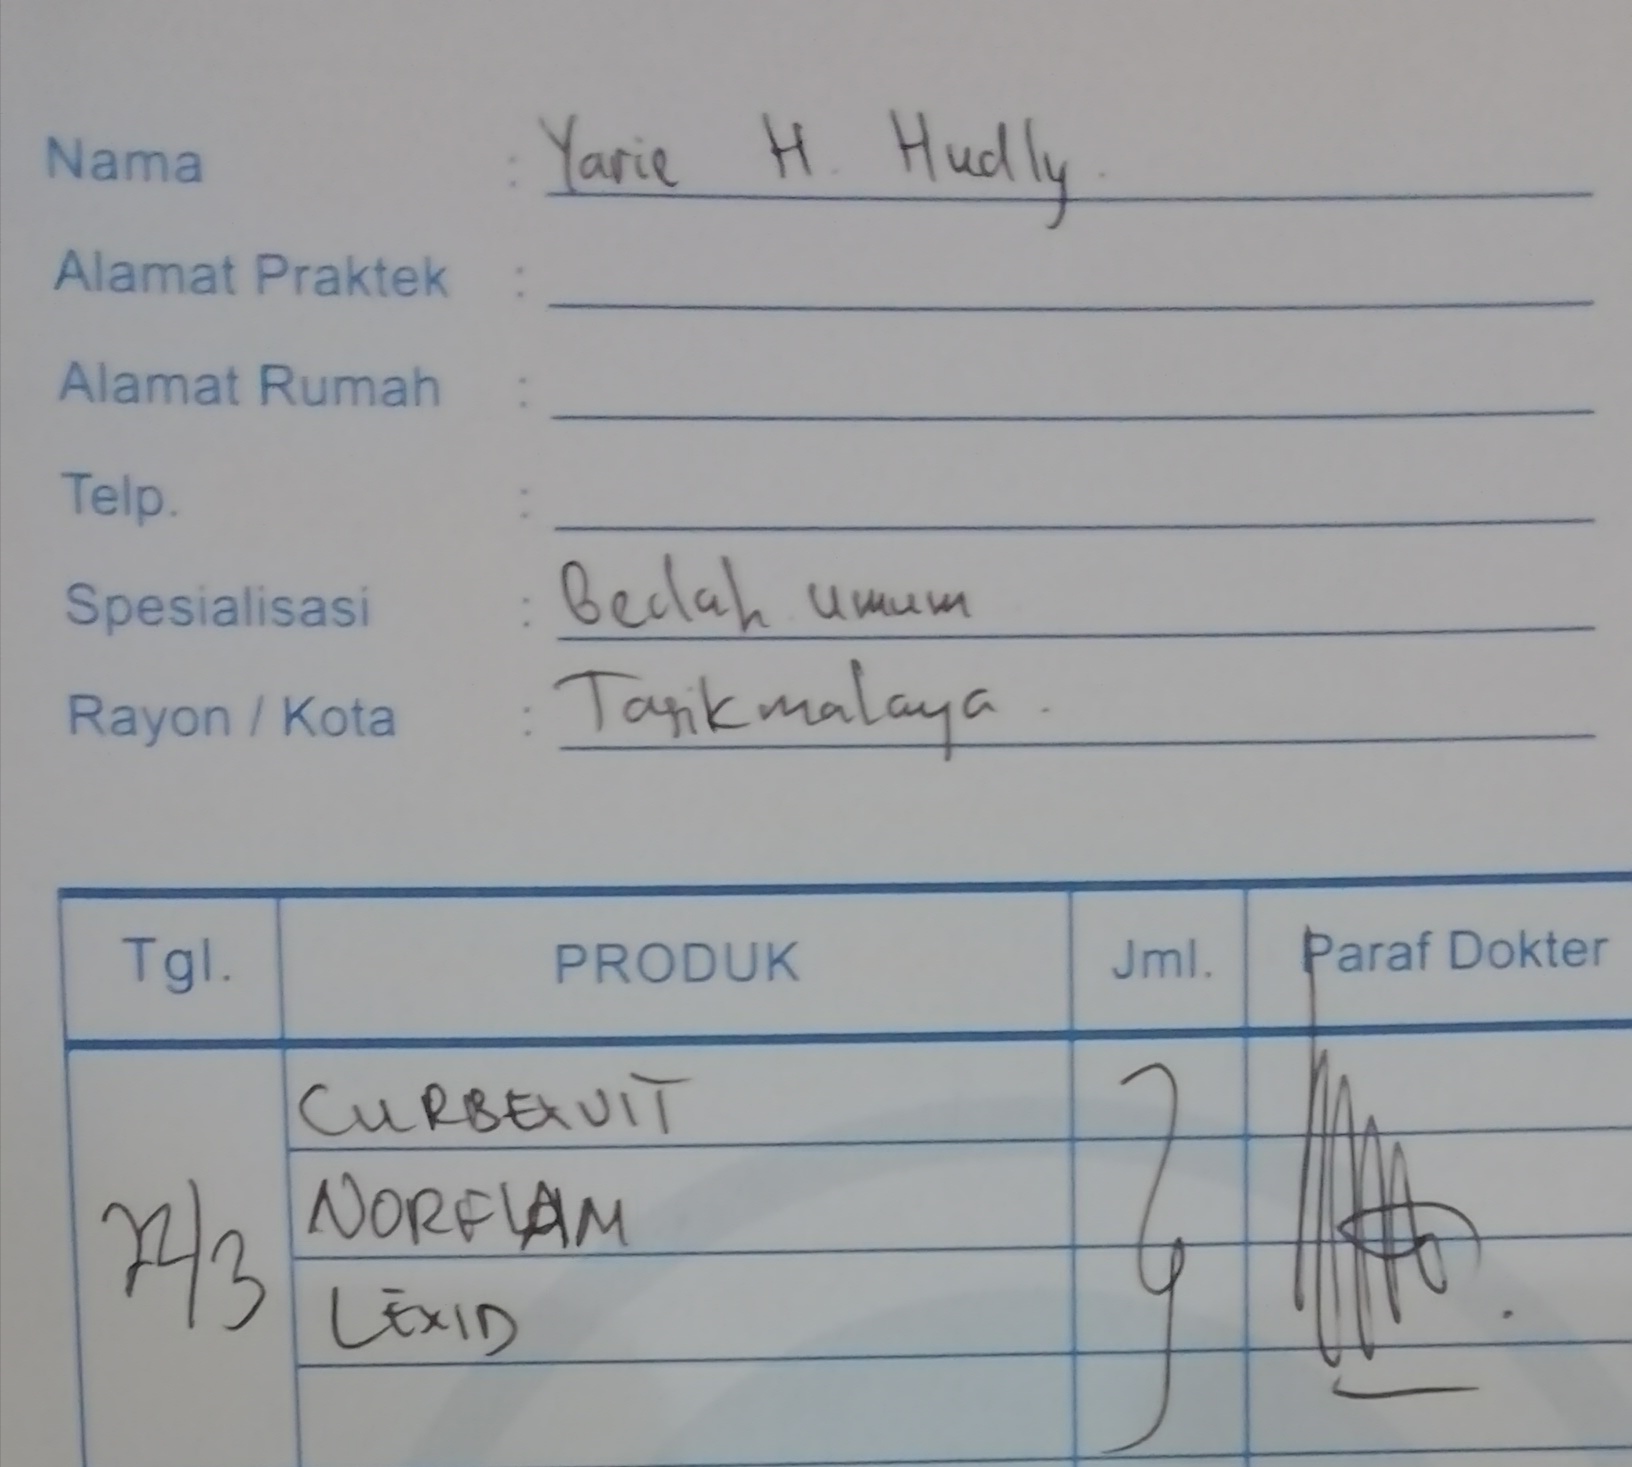 Nama : Yarie H. Hudly.
Alamat Praktek :
Alamat Rumah :
Telp. :
Spesialisasi : Bedah umum
Rayon / Kota : Tasikmalaya.
Tgl. PRODUK Jml. Paraf Dokter
CURBEXVIT
22/3 NORFLAM
LEXID